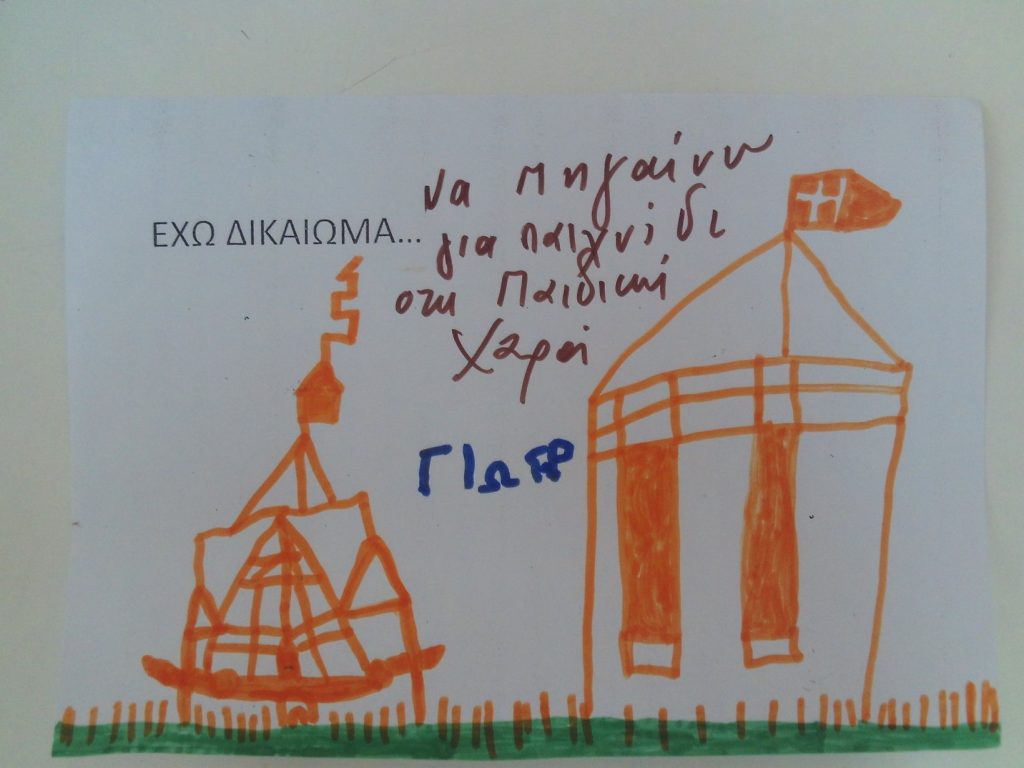 ΕΧΩ ΔΙΚΑΙΩΜΑ...
να πηγαίνω
για παιχνίδι
στη Παιδική
Χαρά